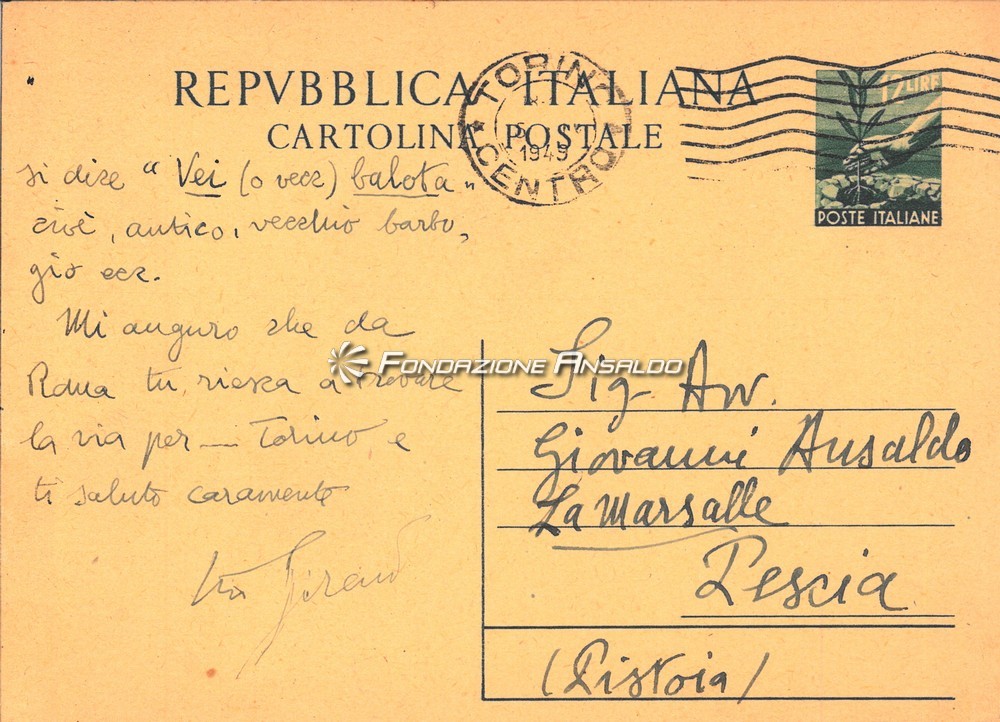 REPVBBLICA ITALIANA
CARTOLINA POSTALE
TORINO
5
1949
CENTRO
12 LIRE
POSTE ITALIANE
si dice " Vei (o vecc) balota "
cioè, antico, vecchio barbo,
gio ecc.
Mi auguro che da
Roma tu, riesca a trovare
la via per — Torino e
ti saluto caramente
FONDAZIONE ANSALDO
Sig. Avv.
Giovanni Ansaldo
La Marsalle
Pescia
(Pistoia)